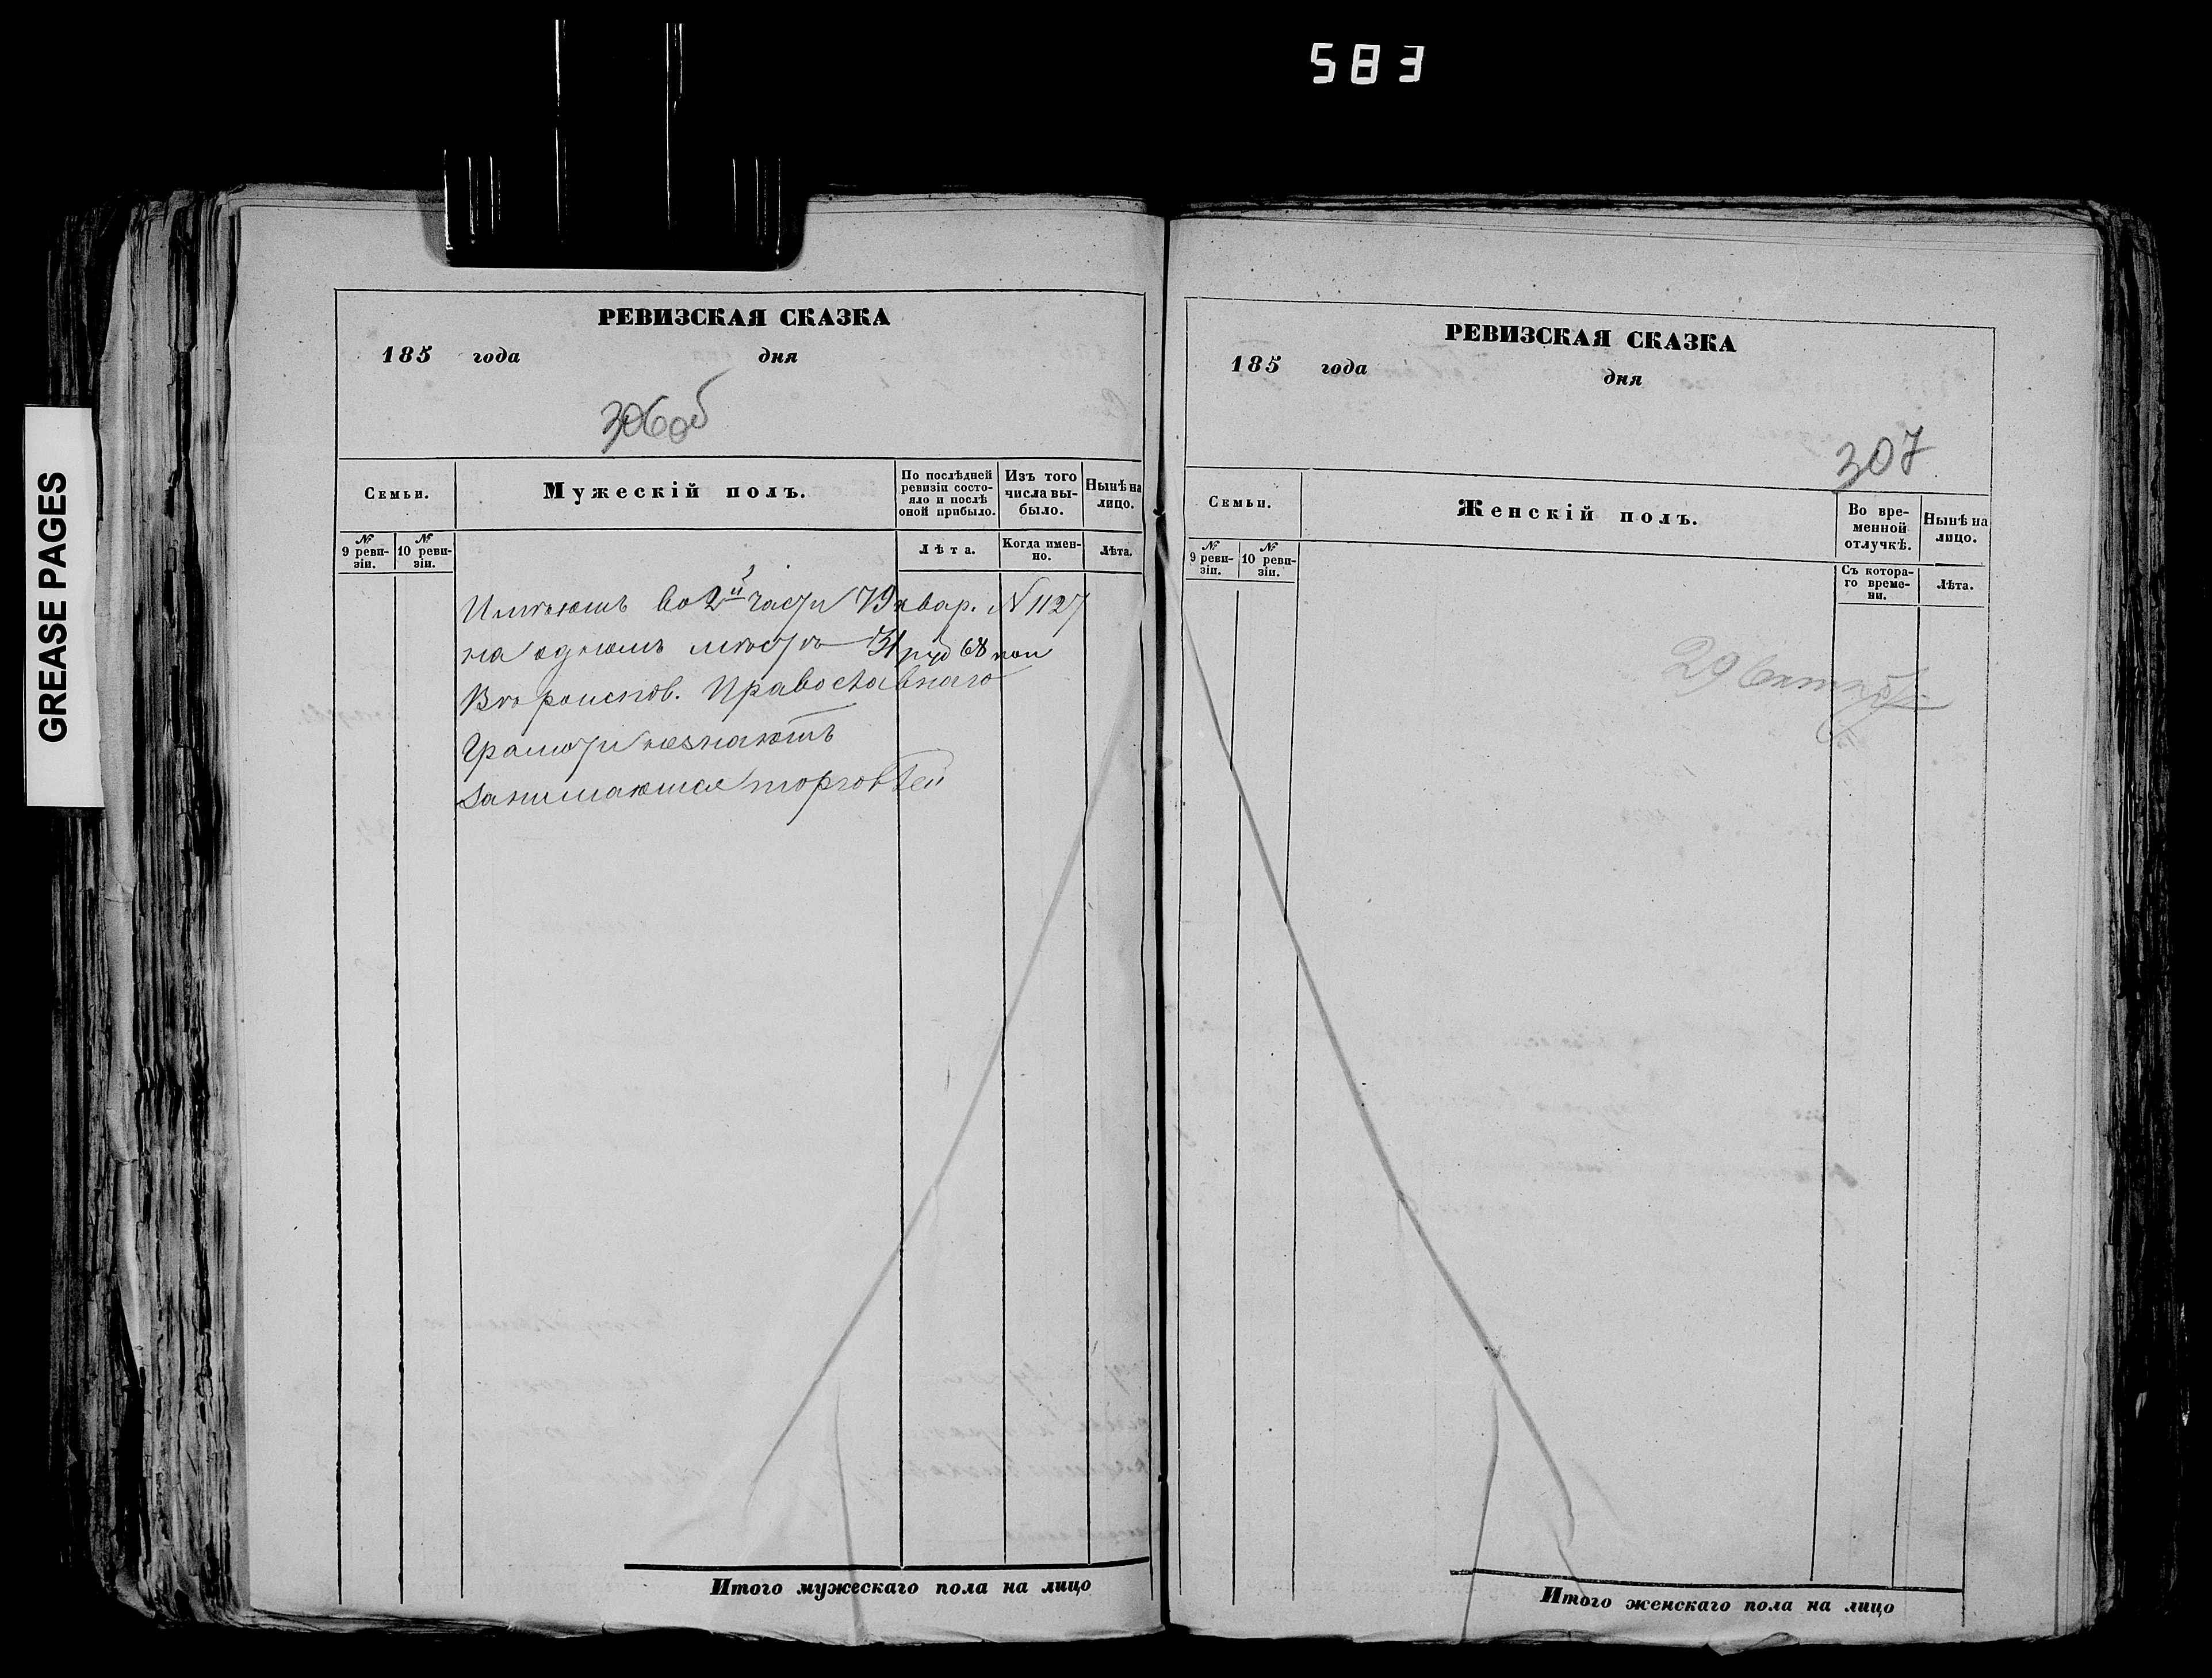 583
GREASE PAGES
РЕВИЗСКАЯ СКАЗКА
185 года дня
306об
Семьи.
Мужескій полъ.
По послѣдней ревизіи состо-
яло и послѣ оной прибыло.
Изъ того числа вы-
было.
Нынѣ на лицо.
№ 9 реви-
зіи.
№ 10 реви-
зіи.
Лѣта.
Когда имен-
но.
Лѣта.
Имѣютъ во 2й части 79 квар. N 1127
на одномъ мѣстѣ 31 руб 68 коп
Вѣроиспов. Православнаго
Грамоти незнаютъ
Занимаются торговлей
Итого мужескаго пола на лицо
РЕВИЗСКАЯ СКАЗКА
185 года дня
307
Семьи.
Женскій полъ.
Во вре-
менной
отлучкѣ.
Нынѣ на
лицо.
№ 9 реви-
зіи.
№ 10 реви-
зіи.
Съ котора-
го време-
ни.
Лѣта.
29 Октяб
Итого женскаго пола на лицо